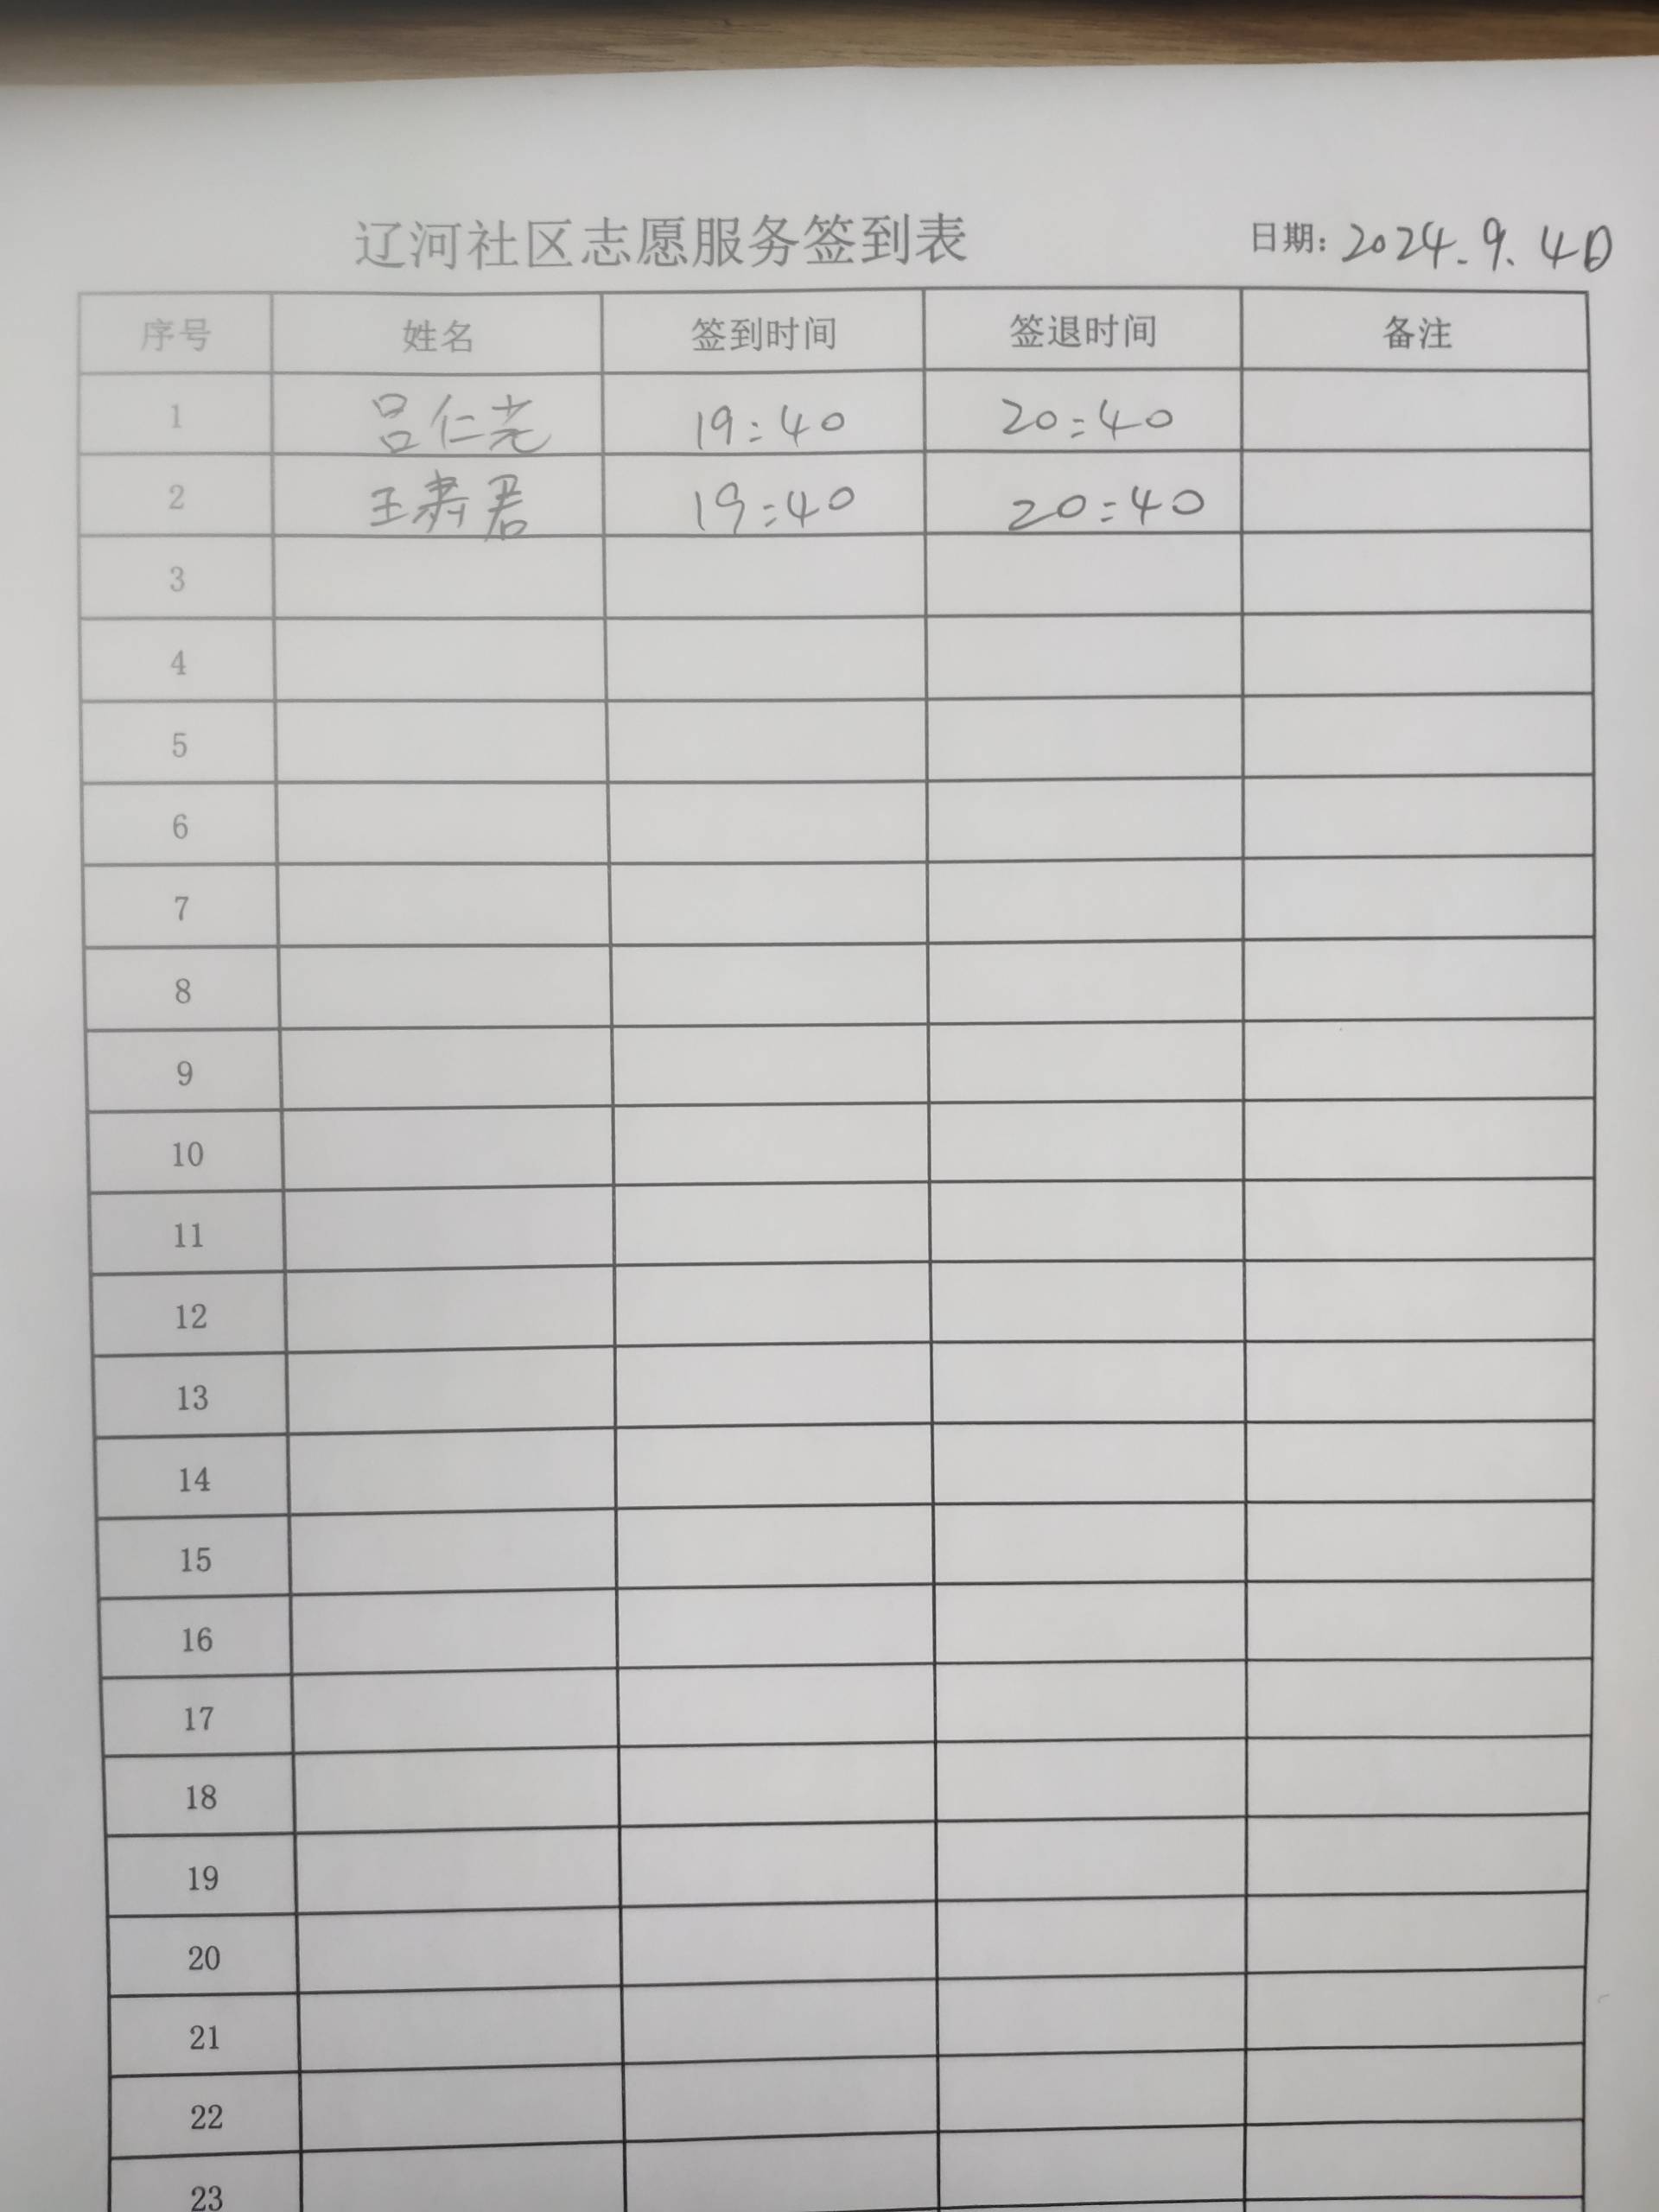 辽河社区志愿服务签到表 日期: 2024.9.4日
序号 姓名 签到时间 签退时间 备注
1 吕仁尧 19:40 20:40
2 王寿君 19:40 20:40
3
4
5
6
7
8
9
10
11
12
13
14
15
16
17
18
19
20
21
22
23